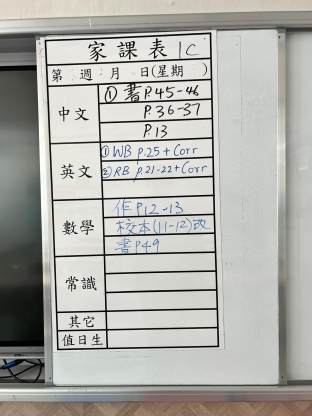 家課表 1C
第 週 月 日(星期 )
中文 ① 書P.45-46
P.36-37
P.13
英文 ① WB P.25+Corr
② RB P.21-22+Corr
數學 作P12-13
校本(11-12)改
書P49
常識
其它
值日生